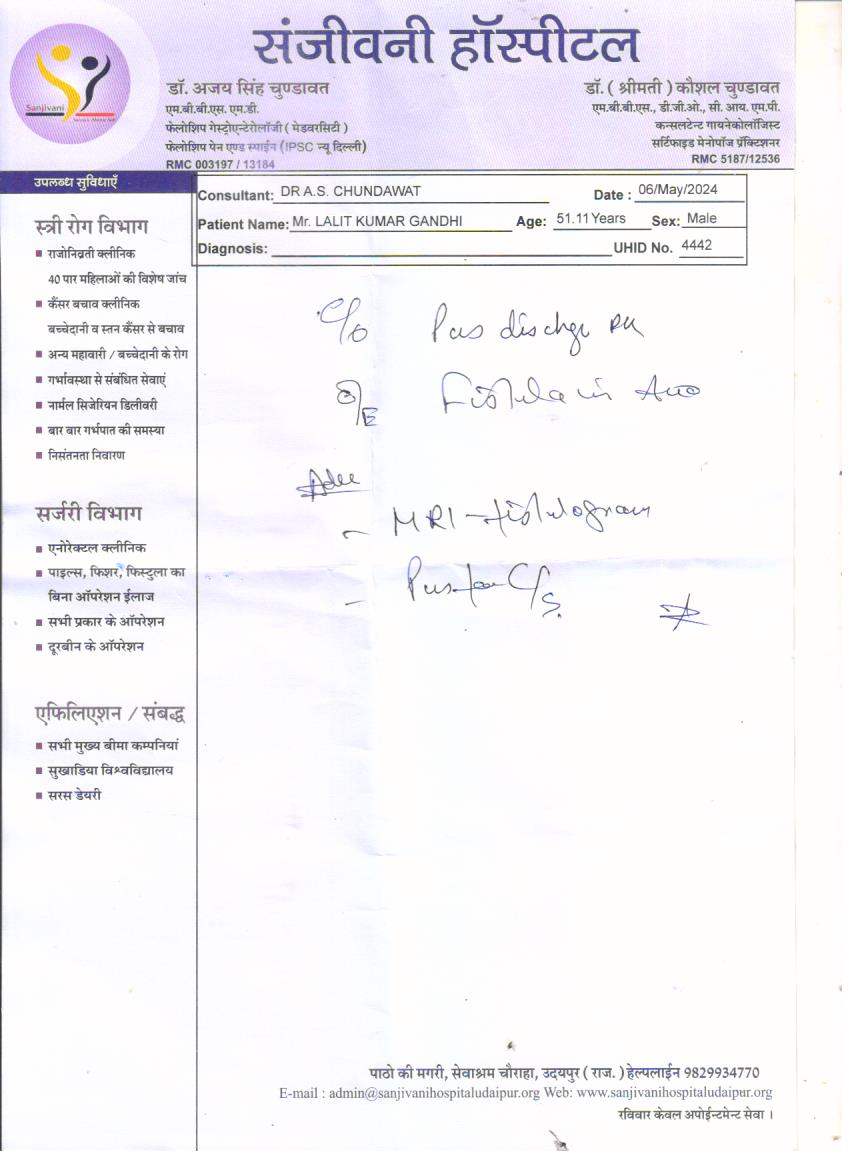 संजीवनी हॉस्पीटल
Sanjivani
डॉ. अजय सिंह चुण्डावत
एम.बी.बी.एस. एम.डी.
फेलोशिप गेस्ट्रोएन्टेरोलॉजी ( मेडवरसिटी )
फेलोशिप पेन एण्ड स्पाईन (IPSC न्यू दिल्ली)
RMC 003197 / 13184
डॉ. ( श्रीमती ) कौशल चुण्डावत
एम.बी.बी.एस., डी.जी.ओ., सी. आय. एम.पी.
कन्सलटेन्ट गायनेकोलॉजिस्ट
सर्टिफाइड मेनोपॉज प्रॅक्टिशनर
RMC 5187/12536
Consultant: DR A.S. CHUNDAWAT Date : 06/May/2024
Patient Name: Mr. LALIT KUMAR GANDHI Age: 51.11 Years Sex: Male
Diagnosis: UHID No. 4442
उपलब्ध सुविधाएँ
स्त्री रोग विभाग
राजोनिव्रती क्लीनिक
40 पार महिलाओं की विशेष जांच
कैंसर बचाव क्लीनिक
बच्चेदानी व स्तन कैंसर से बचाव
अन्य महावारी / बच्चेदानी के रोग
गर्भावस्था से संबंधित सेवाएं
नार्मल सिजेरियन डिलीवरी
बार बार गर्भपात की समस्या
निसंतनता निवारण
सर्जरी विभाग
एनोरेक्टल क्लीनिक
पाइल्स, फिशर, फिस्टुला का
बिना ऑपरेशन ईलाज
सभी प्रकार के ऑपरेशन
दूरबीन के ऑपरेशन
एफिलिएशन / संबद्ध
सभी मुख्य बीमा कम्पनियां
सुखाडिया विश्वविद्यालय
सरस डेयरी
C/o Pus dischge
O/E Fistula in Ano
Adv
- MRI - fistulogram
- Pus for C/S.
पाठो की मगरी, सेवाश्रम चौराहा, उदयपुर ( राज. ) हेल्पलाईन 9829934770
E-mail : admin@sanjivanihospitaludaipur.org Web: www.sanjivanihospitaludaipur.org
रविवार केवल अपोईन्टमेन्ट सेवा ।